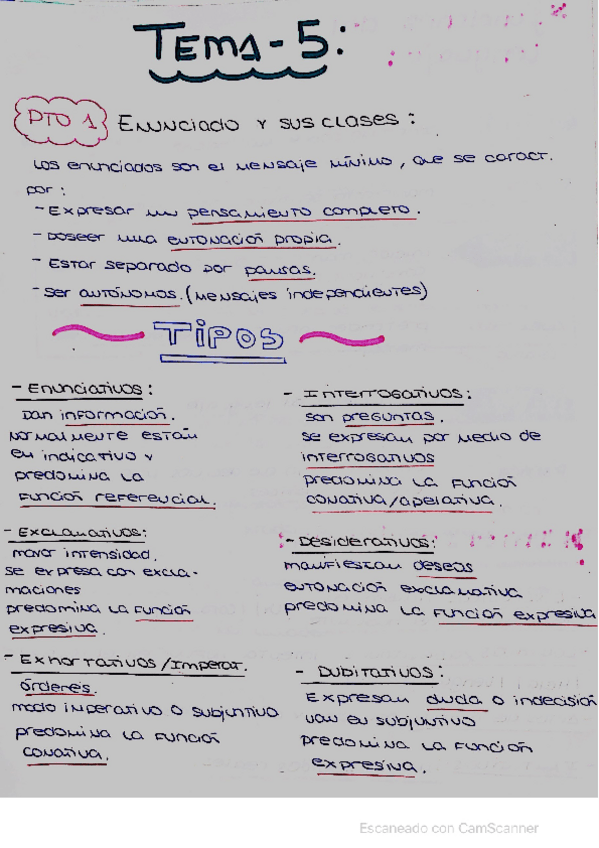 TEMA-5:
PTO 1 Enunciado y sus clases:
Los enunciados son el mensaje mínimo, que se caract.
por:
- Expresar un pensamiento completo.
- Poseer una entonación propia.
- Estar separado por pausas.
- Ser autónomos. (mensajes independientes)
TIPOS
- Enunciativos:
Dan información.
Normalmente están
en indicativo y
predomina la
función referencial.
- Interrogativos:
son preguntas.
se expresan por medio de
interrogativos
predomina la función
conativa/apelativa.
- Exclamativos:
mayor intensidad.
se expresa con excla-
maciones
predomina la función
expresiva.
- Desiderativos:
manifiestan deseos
entonación exclamativa.
predomina la función expresiva
- Exhortativos/Imperat.
órdenes.
modo imperativo o subjuntivo
predomina la función
conativa.
- Dubitativos:
Expresan duda o indecisión
van en subjuntivo
predomina la función
expresiva.
Escaneado con CamScanner